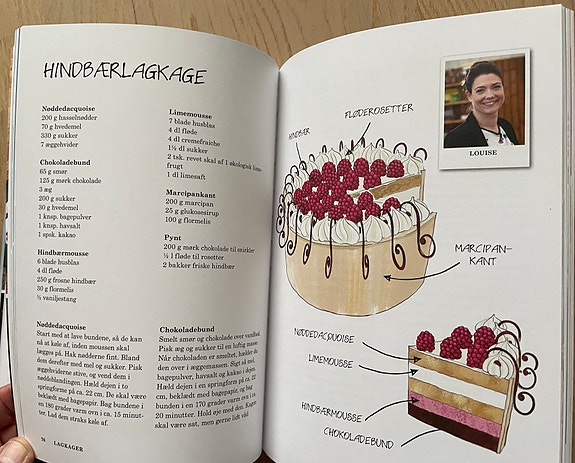 HINDBÆRLAGKAGE
Nøddedacquoise
200 g hasselnødder
70 g hvedemel
330 g sukker
7 æggehvider
Chokoladebund
65 g smør
125 g mørk chokolade
3 æg
200 g sukker
30 g hvedemel
1 knsp. bagepulver
1 knsp. havsalt
1 spsk. kakao
Hindbærmousse
6 blade husblas
4 dl fløde
250 g frosne hindbær
30 g flormelis
½ vaniljestang
Limemousse
7 blade husblas
4 dl fløde
4 dl cremefraiche
1½ dl sukker
2 tsk. revet skal af 1 økologisk lime-
frugt
1 dl limesaft
Marcipankant
200 g marcipan
25 g glukosesirup
100 g flormelis
Pynt
200 g mørk chokolade til snirkler
½ l fløde til rosetter
2 bakker friske hindbær
Nøddedacquoise
Start med at lave bundene, så de kan
nå at køle af, inden moussen skal
lægges på. Hak nødderne fint. Bland
dem derefter med mel og sukker. Pisk
æggehviderne stive, og vend dem i
nøddeblandingen. Hæld dejen i to
springforme på ca. 22 cm. De skal være
beklædt med bagepapir. Bag bundene i
en 180 grader varm ovn i ca. 15 minut-
ter. Lad dem straks køle af.
Chokoladebund
Smelt smør og chokolade over vandbad.
Pisk æg og sukker til en luftig masse.
Når chokoladen er smeltet, hældes
den over i æggemassen. Sigt så mel,
bagepulver, havsalt og kakao i dejen.
Hæld dejen i en springform på ca. 22
cm, beklædt med bagepapir, og bag
bunden i en 170 grader varm ovn i ca.
20 minutter. Hold øje med den. Kagen
skal være sat, men gerne lidt våd
76 LAGKAGER
LOUISE
FLØDEROSETTER
HINDBÆR
MARCIPAN-
KANT
NØDDEDACQUOISE
LIMEMOUSSE
HINDBÆRMOUSSE
CHOKOLADEBUND